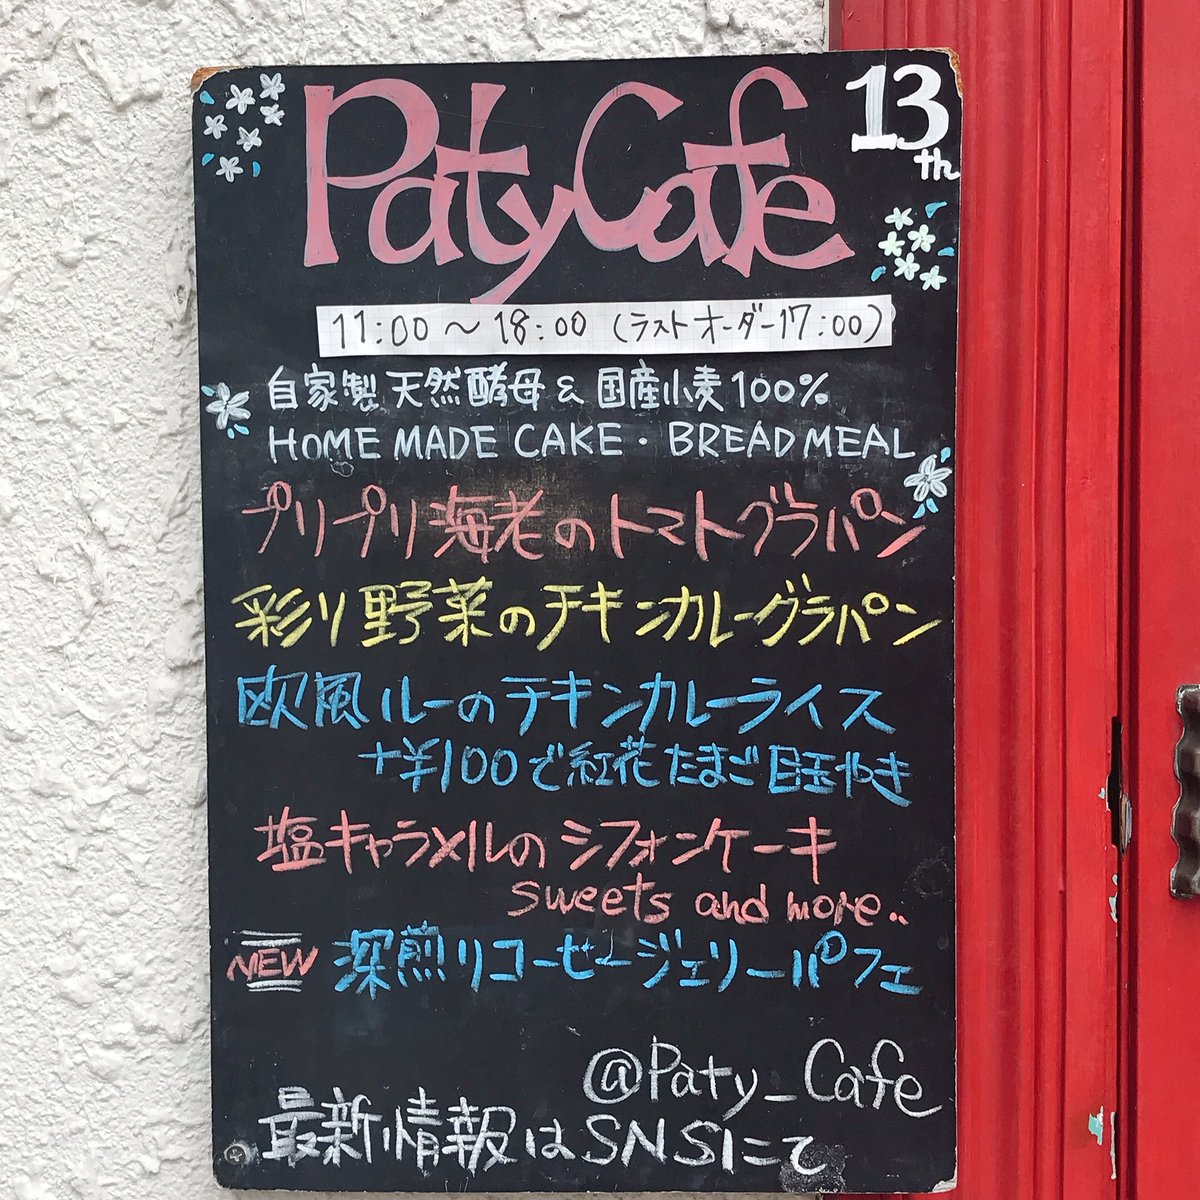 Paty Cafe
13th
11:00～18:00 (ラストオーダー17:00)
自家製天然酵母 & 国産小麦100%
HOME MADE CAKE・BREAD MEAL
プリプリ海老のトマトグラパン
彩り野菜のチキンカレーグラパン
欧風ルーのチキンカレーライス
+¥100で紅花たまご目玉やき
塩キャラメルのシフォンケーキ
sweets and more..
NEW 深煎りコーヒーゼリーパフェ
@Paty_Cafe
最新情報はSNSにて